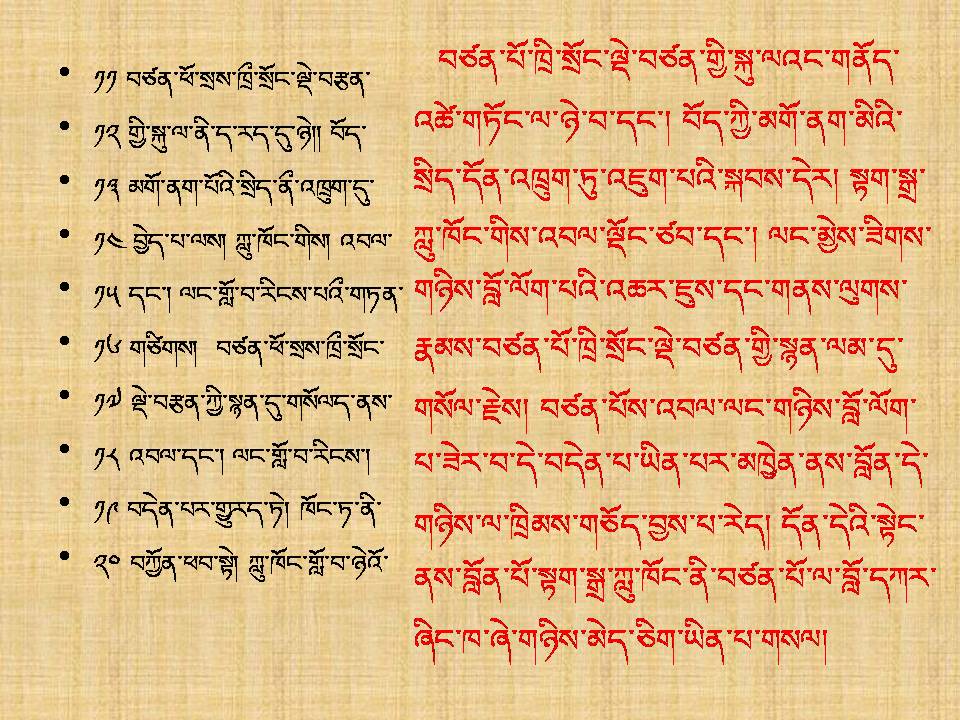 • ༡༡ བཙན་ཕོ་སྲས་ཁྲྀ་སྲོང་ལྡེ་བརྩན་
• ༡༢ གྱི་སྐུ་ལ་ནི་ད་རད་དུ་ཉེ།། བོད་
• ༡༣ མགོ་ནག་པོའི་སྲིད་ནྀ་འཁྲུག་དུ་
• ༡༤ བྱེད་པ་ལས། ཀླུ་ཁོང་གིས། འབལ་
• ༡༥ དང་། ལང་གློ་བ་རིངས་པའྀ་གཏན་
• ༡༦ གཙིགས། བཙན་ཕོ་སྲས་ཁྲྀ་སྲོང་
• ༡༧ ལྡེ་བརྩན་ཀྱི་སྙན་དུ་གསོལད་ནས་
• ༡༨ འབལ་དང་། ལང་གློ་བ་རིངས་།
• ༡༩ བདེན་པར་གྱུརད་ཏེ། ཁོང་ཏ་ནི་
• ༢༠ བཀྱོན་ཕབ་སྟེ། ཀླུ་ཁོང་གློ་བ་ཉེའོ་
བཙན་པོ་ཁྲི་སྲོང་ལྡེ་བཙན་གྱི་སྐུ་ལའང་གནོད་
འཚེ་གཏོང་ལ་ཉེ་བ་དང་། བོད་ཀྱི་མགོ་ནག་མིའི་
སྲིད་དོན་འཁྲུག་ཏུ་འཇུག་པའི་སྐབས་དེར། སྟག་སྒྲ་
ཀླུ་ཁོང་གིས་འབལ་ལྡོང་ཙབ་དང་། ལང་མྱེས་ཟིགས་
གཉིས་བློ་ལོག་པའི་འཆར་ཇུས་དང་གནས་ལུགས་
རྣམས་བཙན་པོ་ཁྲི་སྲོང་ལྡེ་བཙན་གྱི་སྙན་ལམ་དུ་
གསོལ་རྗེས། བཙན་པོས་འབལ་ལང་གཉིས་བློ་ལོག་
པ་ཟེར་བ་དེ་བདེན་པ་ཡིན་པར་མཁྱེན་ནས་བློན་དེ་
གཉིས་ལ་ཁྲིམས་གཅོད་བྱས་པ་རེད། དོན་དེའི་སྟེང་
ནས་བློན་པོ་སྟག་སྒྲ་ཀླུ་ཁོང་ནི་བཙན་པོ་ལ་བློ་དཀར་
ཞིང་ཁ་ཞེ་གཉིས་མེད་ཅིག་ཡིན་པ་གསལ།